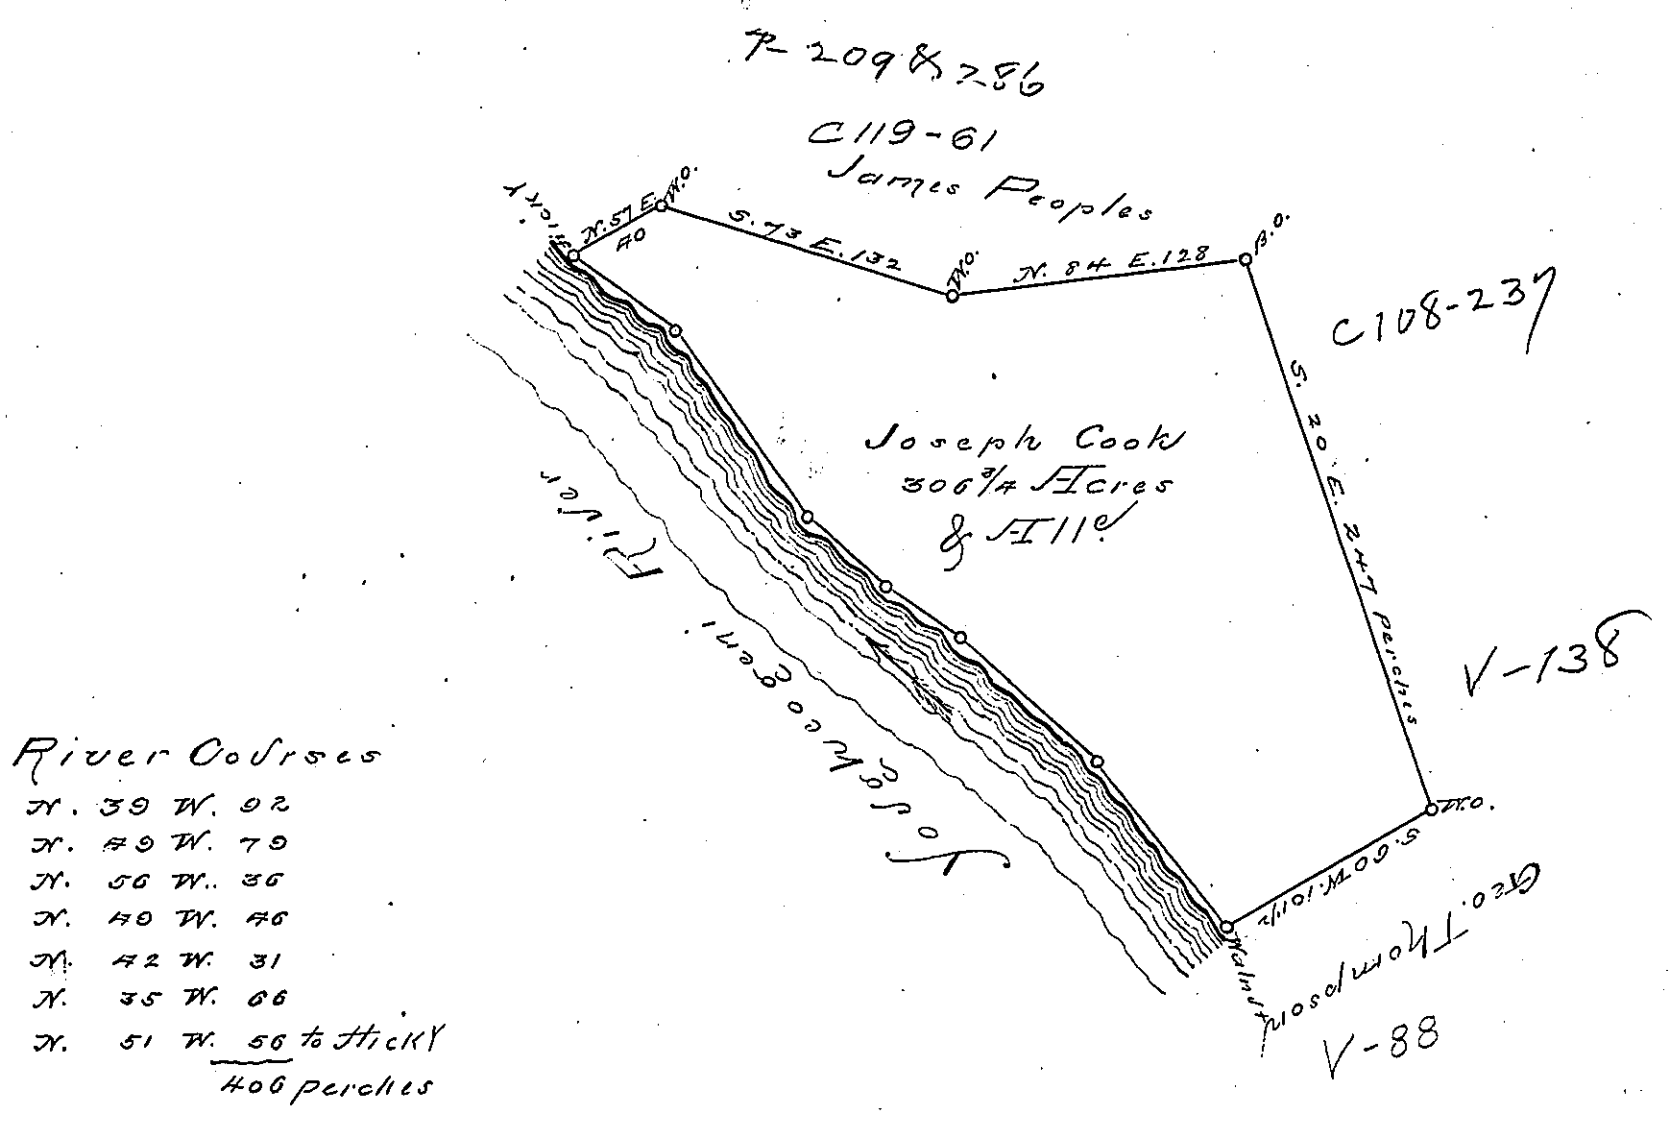 P-209 & 286
C 119-61
James Peoples
Hicky
N. 57 E.
40
W.O.
S. 73 E. 132
W.O.
N. 84 E. 128
B.O.
C 108-237
S. 20 E. 247 perches
Joseph Cook
306 3/4 Acres
& Alle
V-138
W.O.
S. 60 W. 101 1/2
Geo. Thompson
V-88
Walnut
Youghcogeni River
River Courses
N. 39 W. 92
N. 49 W. 79
N. 56 W. 36
N. 49 W. 46
N. 42 W. 31
N. 35 W. 66
N. 51 W. 56 to Hicky
406 perches